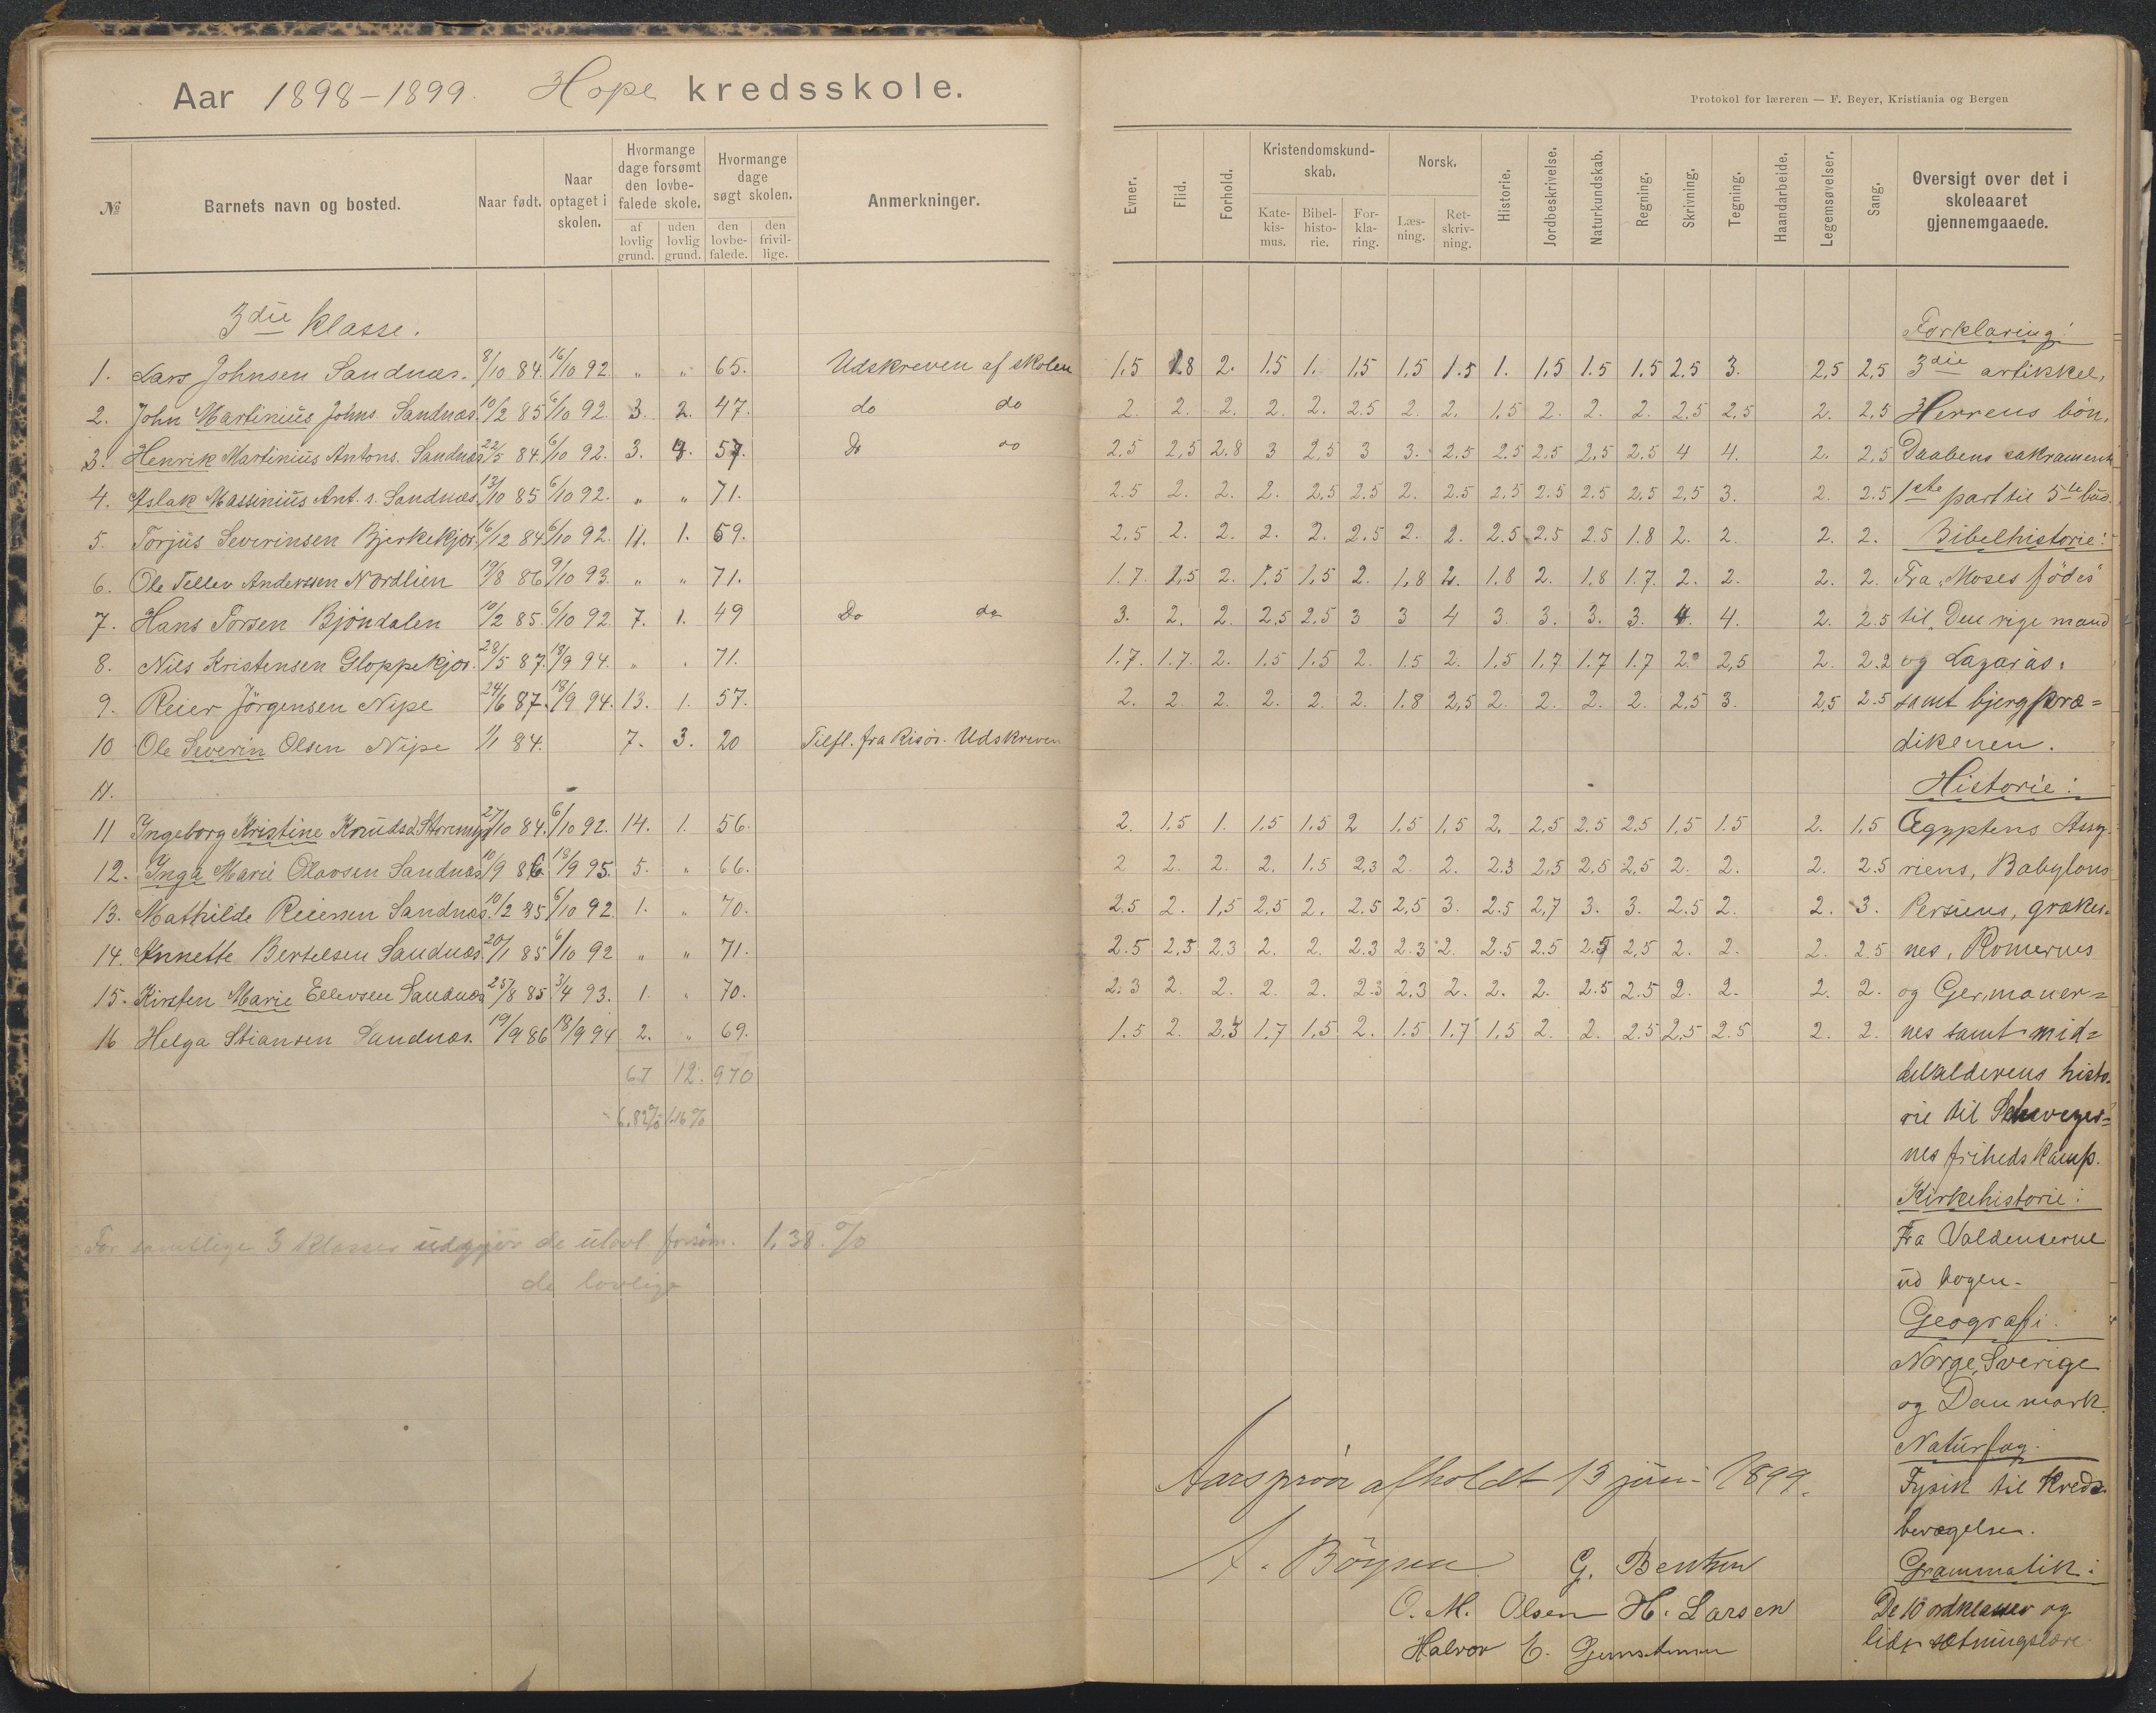 Aar 1898-1899. Hope kredsskole.
№ Barnets navn og bosted. Naar født. Naar optaget i skolen. Hvormange dage forsømt den lovbefalede skole. af lovlig grund. uden lovlig grund. Hvormange dage søgt skolen. den lovbefalede. den frivillige. Anmerkninger.
3die klasse.
1. Lars Johnsen Sandnæs. 8/10 84. 16/10 92 " " 65. Udskreven af skolen
2. John Martinius Johns. Sandnæs 10/2 85 6/10 92. 3. 2. 47. do do
3. Henrik Martinius Antons. Sandnæs 22/5 84. 6/10 92. 3. 4. 57. Do do
4. Aslak Massinius Ant. s. Sandnæs 13/10 85 6/10 92. " " 71.
5. Torjus Severinsen Bjerkekjør. 16/12 84 6/10 92. 11. 1. 59.
6. Ole Tellev Anderssen Nordlien 19/8 86 9/10 93. " " 71.
7. Hans Torsen Bjöndalen 10/2 85. 6/10 92. 7. 1. 49 Do do
8. Nils Kristensen Gloppekjør. 28/5 87. 18/9 94. " " 71.
9. Reier Jörgensen Nipe 24/6 87. 18/9 94. 13. 1. 57.
10 Ole Severin Olsen Nipe 1/1 84. 7. 3. 20 Tilfl. fra Risör. Udskreven
11.
11 Ingeborg Kristine Knudsd. 27/10 84. 6/10 92. 14. 1. 56.
12. Inga Marie Olavsen Sandnæs 10/9 86 18/9 95. 5. " 66.
13. Mathilde Reiersen Sandnæs. 10/2 85 6/10 92 1. " 70.
14. Annette Bertelsen Sandnæs. 20/1 85 6/10 92 " " 71.
15. Kirsten Marie Ellevsen Sandnæs 25/8 85 3/4 93. 1. " 70.
16 Helga Stiansen Sandnæs. 19/9 86 18/9 94 2. " 69.
67 12. 970
6.82%
For samtlige 3 klasser udgjör de ulovl. forsöm. 1,38 %
de lovlige
Protokol for læreren — F. Beyer, Kristiania og Bergen
Evner. Flid. Forhold. Kristendomskundskab. Katekismus. Bibelhistorie. Forklaring. Norsk. Læsning. Retskrivning. Historie. Jordbeskrivelse. Naturkundskab. Regning. Skrivning. Tegning. Haandarbeide. Legemsøvelser. Sang. Øversigt over det i skoleaaret gjennemgaaede.
Forklaring:
1,5 1.8 2. 1.5 1. 1,5 1,5 1.5 1. 1,5 1.5 1.5 2.5 3. 2,5 2,5 3die artikkel,
2. 2. 2. 2. 2. 2.5 2. 2. 1,5 2. 2. 2. 2.5 2,5 2. 2,5 Herrens bön,
2,5 2,5 2.8 3 2,5 3 3. 2.5 2.5 2.5 2,5 2.5 4 4. 2. 2,5 Daabens sakrament
2.5 2. 2. 2. 2,5 2.5 2. 2.5 2,5 2.5 2.5 2,5 2,5 3. 2. 2.5 1ste part til 5te bud.
2,5 2. 2. 2. 2. 2,5 2. 2. 2.5 2.5 2.5 1.8 2. 2. 2. 2. Bibelhistorie:
1.7. 1,5 2. 1.5 1,5 2. 1,8 2. 1.8 2. 1,8 1.7. 2. 2. 2. 2. Fra "Moses födes"
3. 2. 2. 2,5 2.5 3 3 4 3. 3. 3. 3. 4. 4. 2. 2.5 til "Den rige mand
1.7. 1.7. 2. 1.5 1.5 2. 1.5 2. 1,5 1,7 1.7 1.7 2. 2,5 2. 2.2 og Lazarus.
2. 2. 2. 2. 2. 2. 1.8 2,5 2. 2. 2. 2. 2.5 3. 2,5 2.5 samt bjergpræ=
dikenen.
Historie:
2. 1,5 1. 1.5 1,5 2 1.5 1,5 2. 2,5 2.5 2.5 1,5 1.5 2. 1,5 Ægyptens Assy-
2 2. 2. 2. 1.5 2,3 2. 2. 2.3 2,5 2,5 2,5 2. 2. 2. 2.5 riens, Babylons
2.5 2. 1,5 2,5 2. 2.5 2,5 3. 2.5 2,7 3. 3. 2.5 2. 2. 3. Persiens, græker-
2.5 2,5 2,3 2. 2. 2.3 2.3 2. 2.5 2.5 2.5 2,5 2. 2. 2. 2.5 nes, Romernes
2.3 2. 2. 2. 2. 2.3 2,3 2. 2. 2. 2.5 2.5 2. 2. 2. 2. og Germaner=
1.5 2. 2,3 1.7 1,5 2. 1.5 1.7 1,5 2. 2. 2.5 2,5 2.5 2. 2. nes samt mid=
delalderens histo-
rie til Schveizer=
nes frihedskamp.
Kirkehistorie:
Fra Valdenserne
ud bogen.
Geografi.
Norge, Sverige
og Danmark.
Naturfag.
Fysik til Kreds-
bevægelse.
Grammatik:
De 10 ordklasser og
lidt sætningslære
Aarspröve afholdt 13 juni 1899.
A. Böysen G. Bentsen
O. M. Olsen H. Larsen
Halvor E.